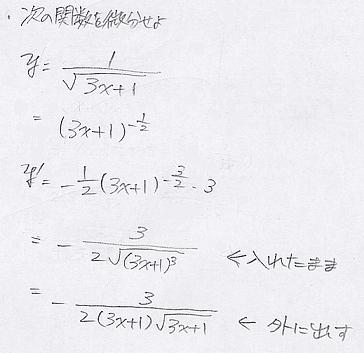 ・次の関数を微分せよ
y = 1/√(3x+1)
= (3x+1)^(-1/2)
y' = -1/2(3x+1)^(-3/2)・3
= - 3/(2√((3x+1)³)) ← 入れたまま
= - 3/(2(3x+1)√(3x+1)) ← 外に出す